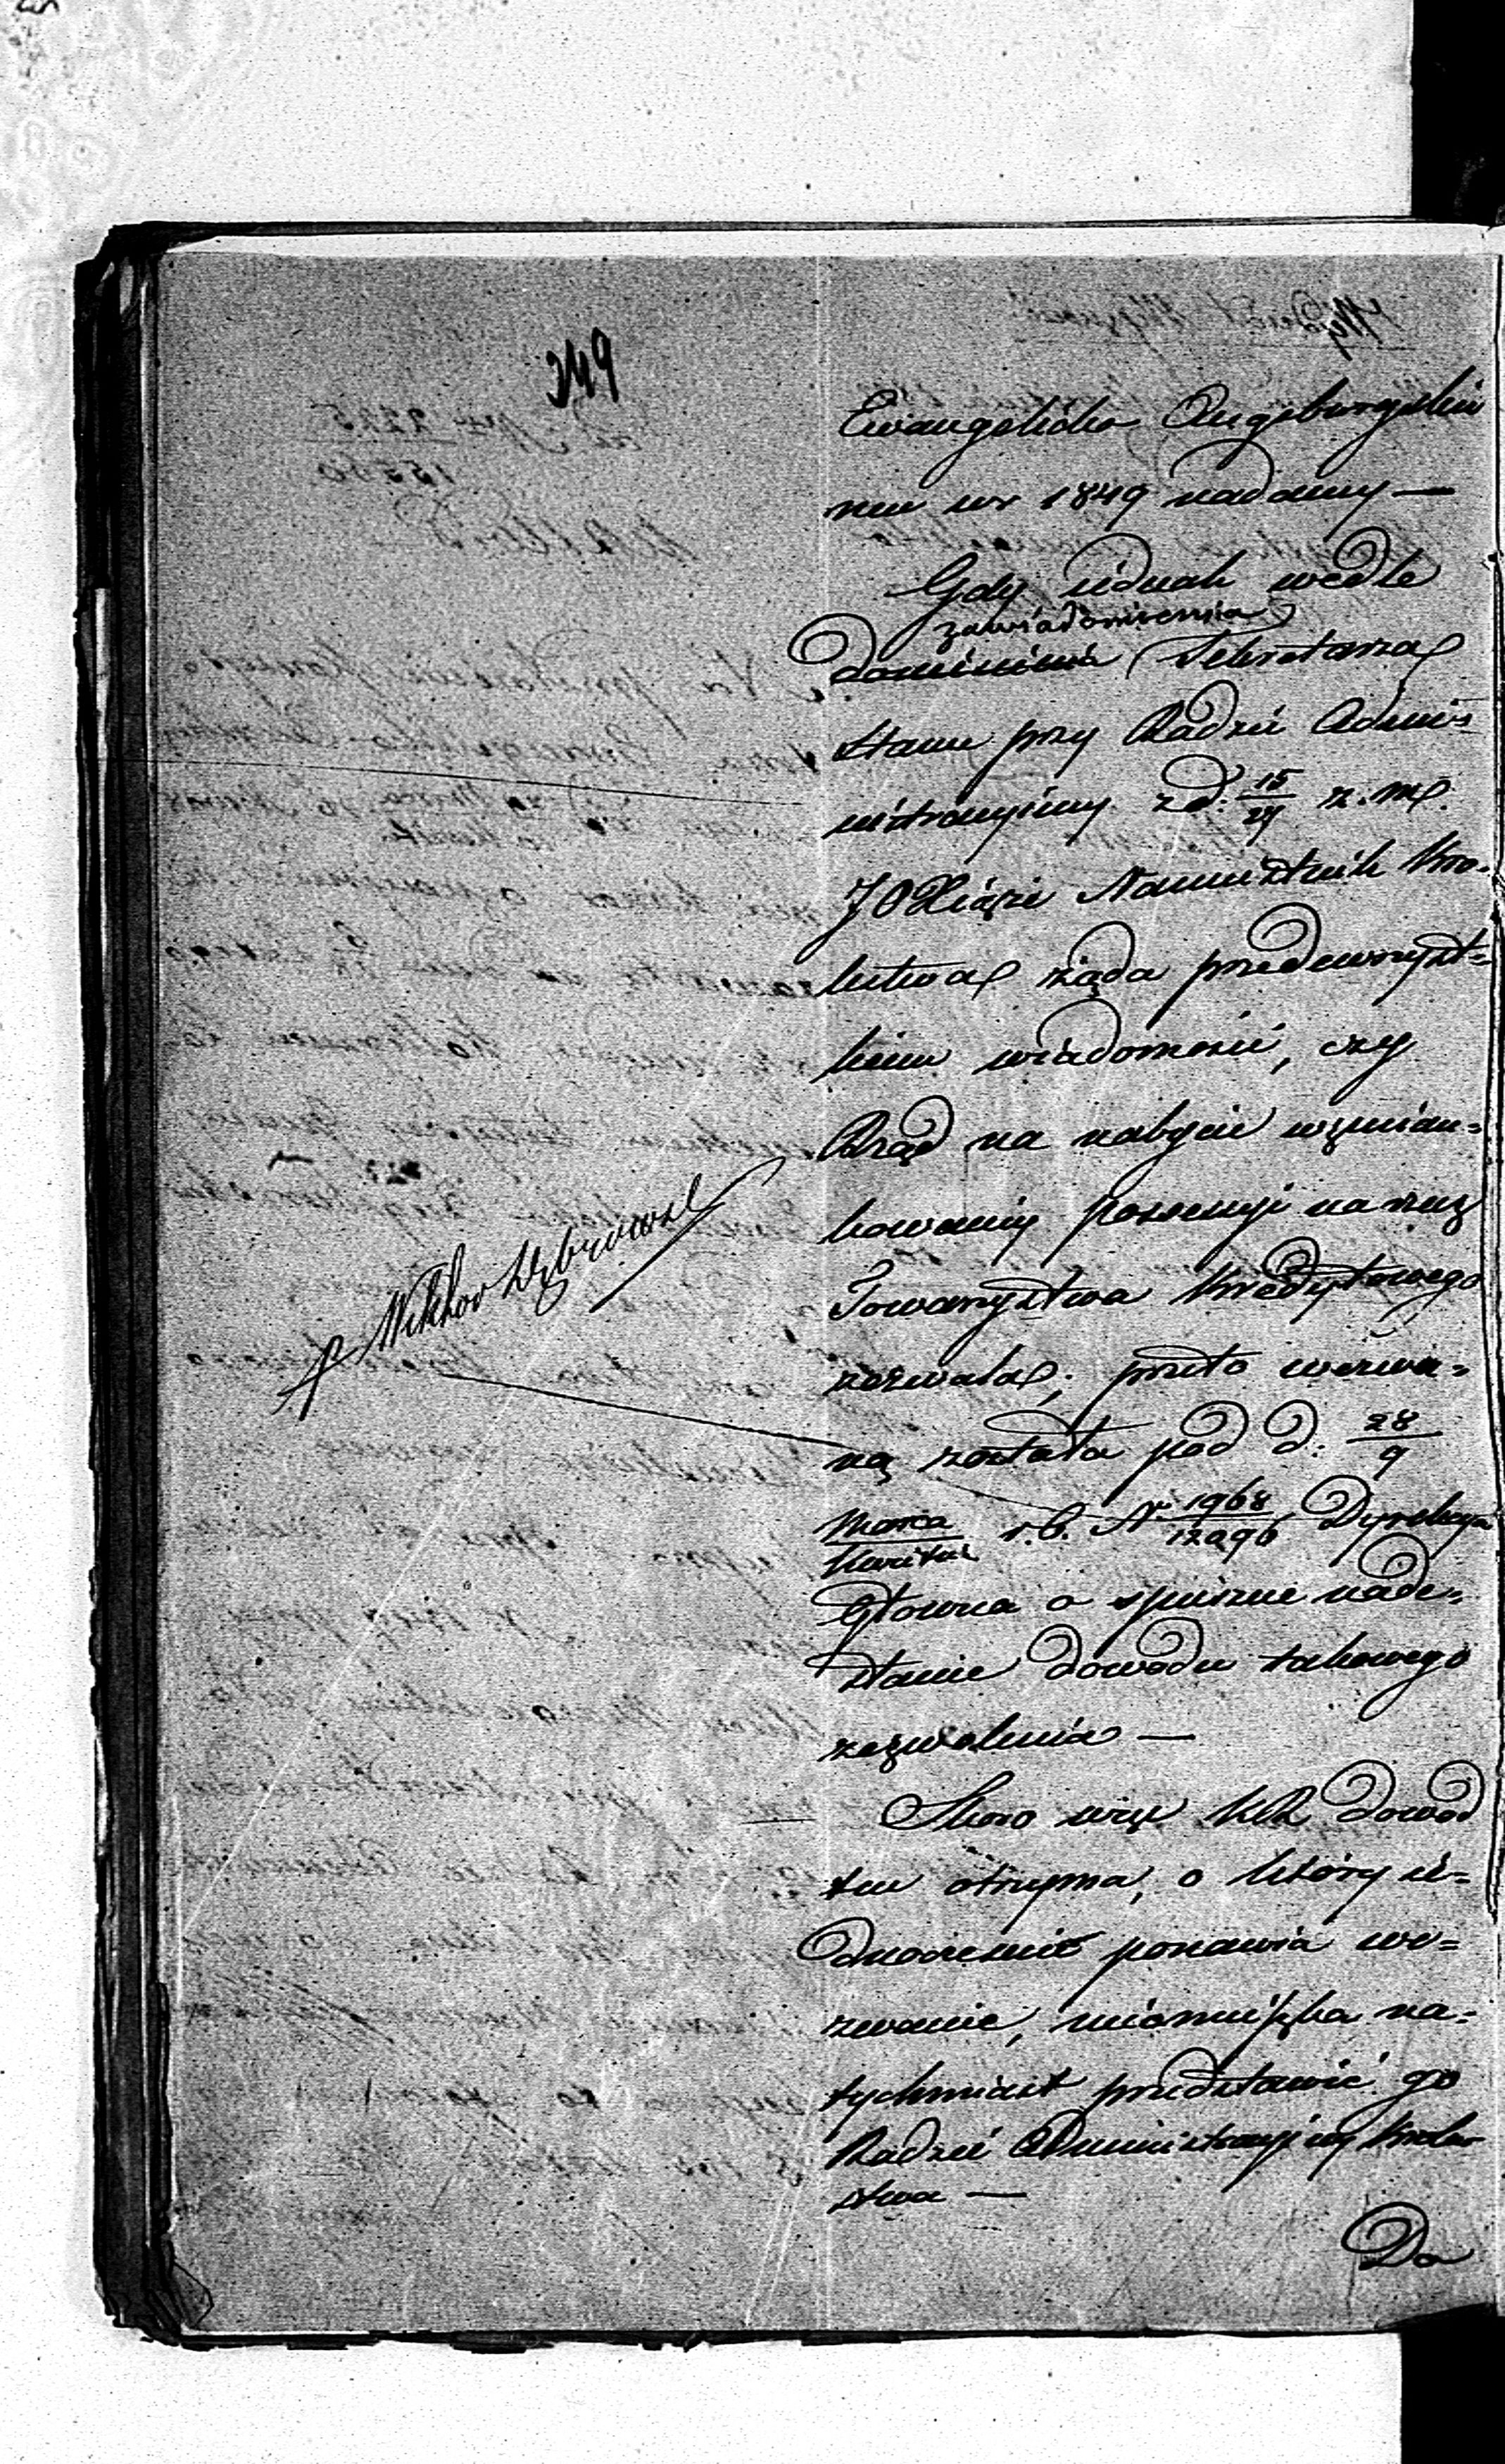 249
Ewangelicko Augsburgskie
mu w r 1849 nadany —
Gdy iednak wedle
zawiadomienia
doniesienia Sekretarza
Stanu przy Radzie Admi=
nistracyiney z d: 15/27 z. m.
J O Xiąże Namiestnik Kro=
lestwa żąda przedewszyst=
kiem wiadomości, czy
Rząd na nabycie wzmian=
kowaney possessyi na rzecz
Towarzystwa Kredytowego
zezwala; przeto wezwa=
ną została pod d: 28/9
Marca/Kwietnia r. b. N 1968/12296 Dyrekcya
Głowna o spieszne nade=
słanie dowodu takowego
zezwolenia —
Skoro więc KR dowod
ten otrzyma, o który ie=
dnocześnie ponawia we=
zwanie, nieomieszka na=
tychmiast przedstawić go
Radzie Administracyiney Krole
stwa —
Do
Wiktor Dąbrowski